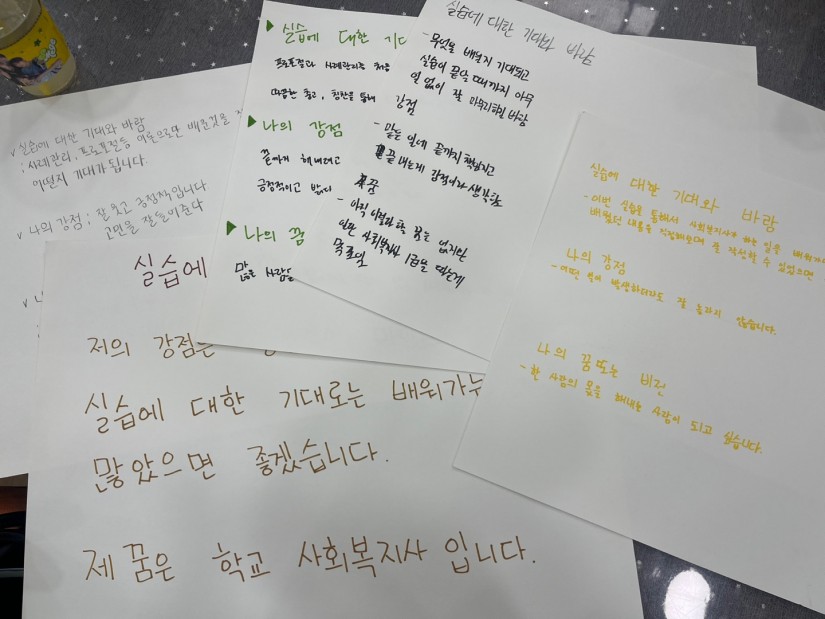 실습에 대한 기대와 바람
; 사례관리, 프로포절등 이론으로만 배운것을
어떨지 기대가 됩니다.
나의 강점 : 잘 웃고 긍정적입니다
고민을 잘 들어준다
실습에 대한 기대
프로포절과 사례관리를 처음
따끔한 충고, 칭찬을 통해
나의 강점
끝까지 해내려고
긍정적이고 밝다
나의 꿈
많은 사람들
실습에 대한 기대와 바람
- 무엇을 배울지 기대되고
실습이 끝날 때까지 아무
일 없이 잘 마무리하길 바람
강점
- 맡은 일에 끝까지 책임지고
끝내는게 강점이라 생각함
꿈
- 아직 이렇다 할 꿈은 없지만
일단 사회복지사 1급을 따는게
목표임
실습에 대한 기대와 바람
- 이번 실습을 통해서 사회복지사가 하는 일을 배워가며
배웠던 내용을 직접해보며 잘 작성할 수 있었으면
나의 강점
- 어떤 일이 발생하더라도 잘 놀라지 않습니다.
나의 꿈또는 비전
- 한 사람의 몫을 해내는 사람이 되고 싶습니다.
실습에
저의 강점은
실습에 대한 기대로는 배워가는
많았으면 좋겠습니다.
제 꿈은 학교 사회복지사 입니다.